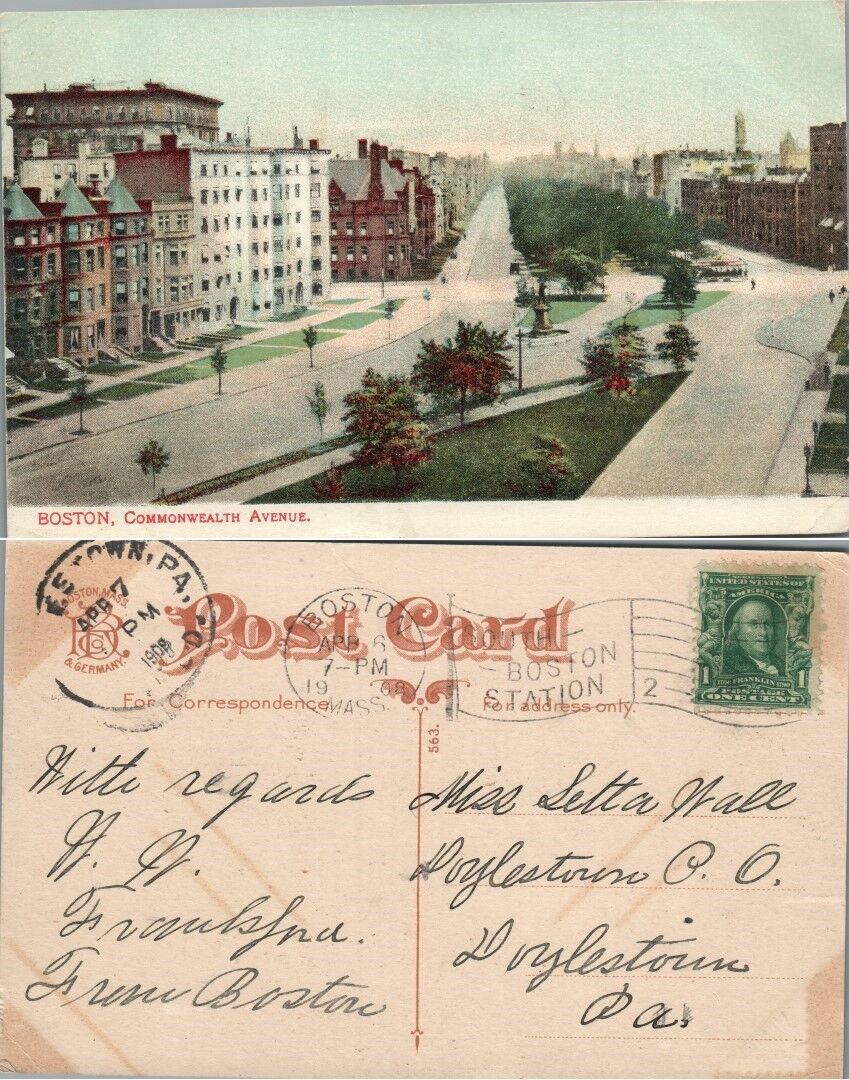 BOSTON, COMMONWEALTH AVENUE.
ESTOWN, PA.
APR 7
PM
1908
REC'D
BOSTON, MASS.
& GERMANY.
Post Card
BOSTON
APR 6
7-PM
1908
MASS.
SOUTH
BOSTON
STATION
2
SERIES 1902
UNITED STATES OF AMERICA
1 1
1706 FRANKLIN 1790
POSTAGE
ONE CENT
For Correspondence.
For address only.
563.
With regards
W. W.
From Boston
Miss Letta Wall
Doylestown P. O.
Doylestown
Pa.